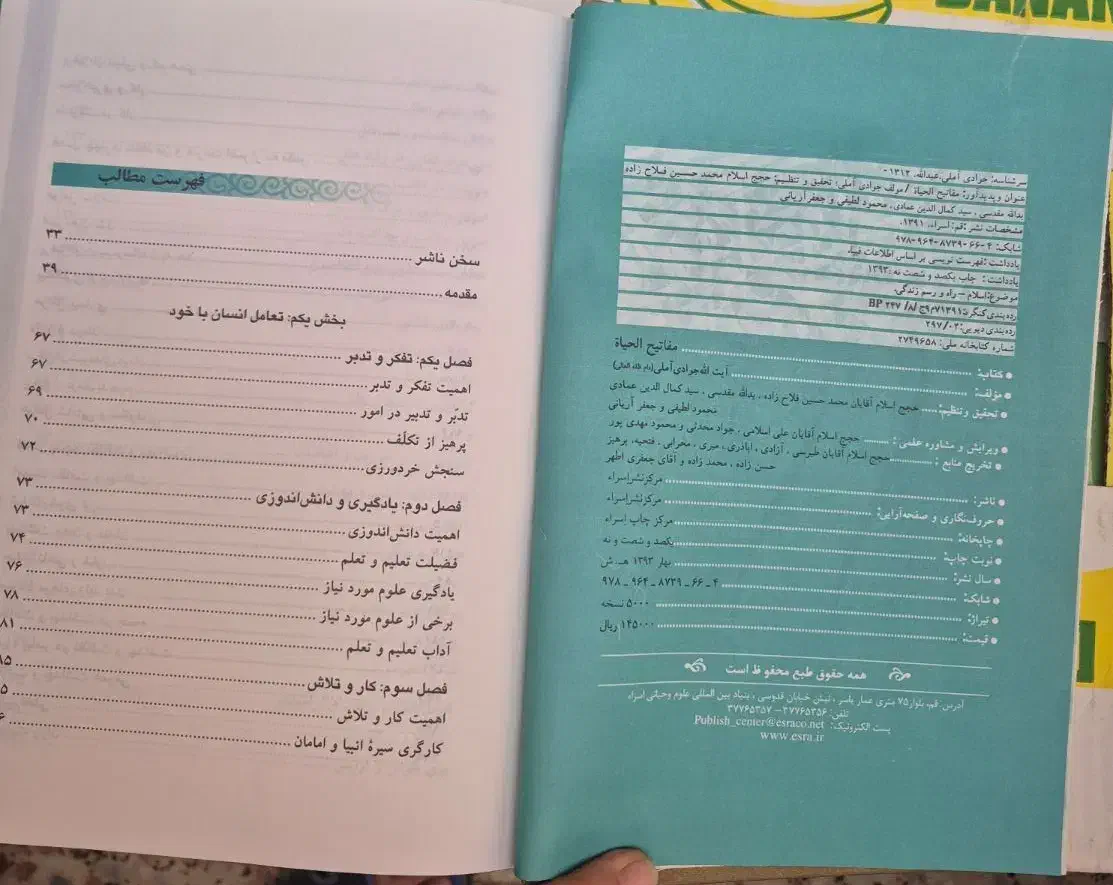 سرشناسه: جوادی آملی، عبدالله، ۱۳۱۲-
عنوان و پدیدآور: مفاتیح الحیاة / مولف جوادی آملی؛ تحقیق و تنظیم: حجج اسلام محمد حسین فلاح زاده
یدالله مقدسی، سید کمال الدین عمادی، محمود لطیفی و جعفر آریانی
مشخصات نشر: قم: اسراء، ۱۳۹۱.
شابک: ۴-۶۶-۸۷۳۹-۹۶۴-۹۷۸
یادداشت: فهرست نویسی بر اساس اطلاعات فیپا.
یادداشت: چاپ یکصد و شصت نه: ۱۳۹۳
موضوع: اسلام – راه و رسم زندگی.
رده بندی کنگره: BP ۲۴۷ /۸
رده بندی دیویی: ۲۹۷/۰۴
شماره کتابخانه ملی: ۲۷۴۹۶۵۸
● کتاب: مفاتیح الحیاة
● مؤلف: آیت الله جوادی آملی (دام ظله العالی)
● تحقیق و تنظیم: حجج اسلام آقایان محمد حسین فلاح زاده، یدالله مقدسی، سید کمال الدین عمادی
محمود لطیفی و جعفر آریانی
● ویرایش و مشاوره علمی: حجج اسلام آقایان علی اسلامی، جواد محدثی و محمود مهدی پور
● تخریج منابع: حجج اسلام آقایان طبرسی، آزادی، اباذری، میری، محرابی، فتحیه، پرهیز
حسن زاده، محمد زاده و آقای جعفری اطهر
● ناشر: مرکز نشر اسراء
● حروف‌نگاری و صفحه‌آرایی: مرکز نشر اسراء
● چاپخانه: مرکز چاپ اسراء
● نوبت چاپ: یکصد و شصت و نه
● سال نشر: بهار ۱۳۹۳ هـ. ش
● شابک: ۴ ـ ۶۶ ـ ۸۷۳۹ ـ ۹۶۴ ـ ۹۷۸
● تیراژ: ۵۰۰۰ نسخه
● قیمت: ۱۴۵۰۰۰ ریال
همه حقوق طبع محفوظ است
آدرس: قم، بلوار ۷۵ متری عمار یاسر، نبش خیابان قدوسی، بنیاد بین المللی علوم وحیانی اسراء
تلفن: ۳۷۷۶۵۳۵۶ – ۳۷۷۶۵۳۵۷
پست الکترونیک: Publish_center@esraco.net
www.esra.ir
فهرست مطالب
سخن ناشر ۳۳
مقدمه ۳۹
بخش یکم: تعامل انسان با خود
فصل یکم: تفکر و تدبر ۶۷
اهمیت تفکر و تدبر ۶۷
تدبّر و تدبیر در امور ۶۹
پرهیز از تکلّف ۷۰
سنجش خردورزی ۷۲
فصل دوم: یادگیری و دانش‌اندوزی ۷۳
اهمیت دانش‌اندوزی ۷۳
فضیلت تعلیم و تعلم ۷۴
یادگیری علوم مورد نیاز ۷۶
برخی از علوم مورد نیاز ۷۸
آداب تعلیم و تعلم ۸۱
فصل سوم: کار و تلاش
اهمیت کار و تلاش
کارگری سیرهٔ انبیا و امامان